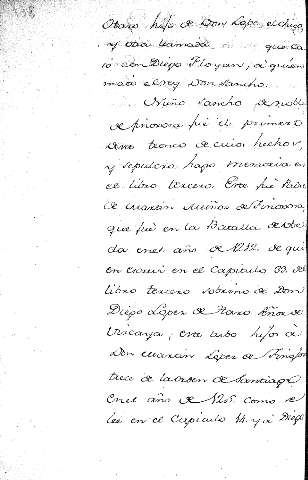 Otaro hijo de Don Lope, el chico,
y otra llamada que ca
só con Diego Floyan, á quien
mató el rey Don Sancho.
Nuño Sancho de noble
de finoxosa fué el primero
deste tronco de cuios hechos,
y sepulcro hago memoria en
el libro tercero. Este fué Padre
de Martin Muños de Finoxosa
que fué en la Batalla de Ube
da en el año de 1212. de qui
en escriví en el Capitulo 33. del
libro tercero sobrino de Don
Diego Lopez de Haro Señor de
Vizcaya; este tubo hijos á
Don Martin Lopez de Finojos
trece de la orden de Santiago
en el año de como se
lee en el Capitulo 14. y á Diego